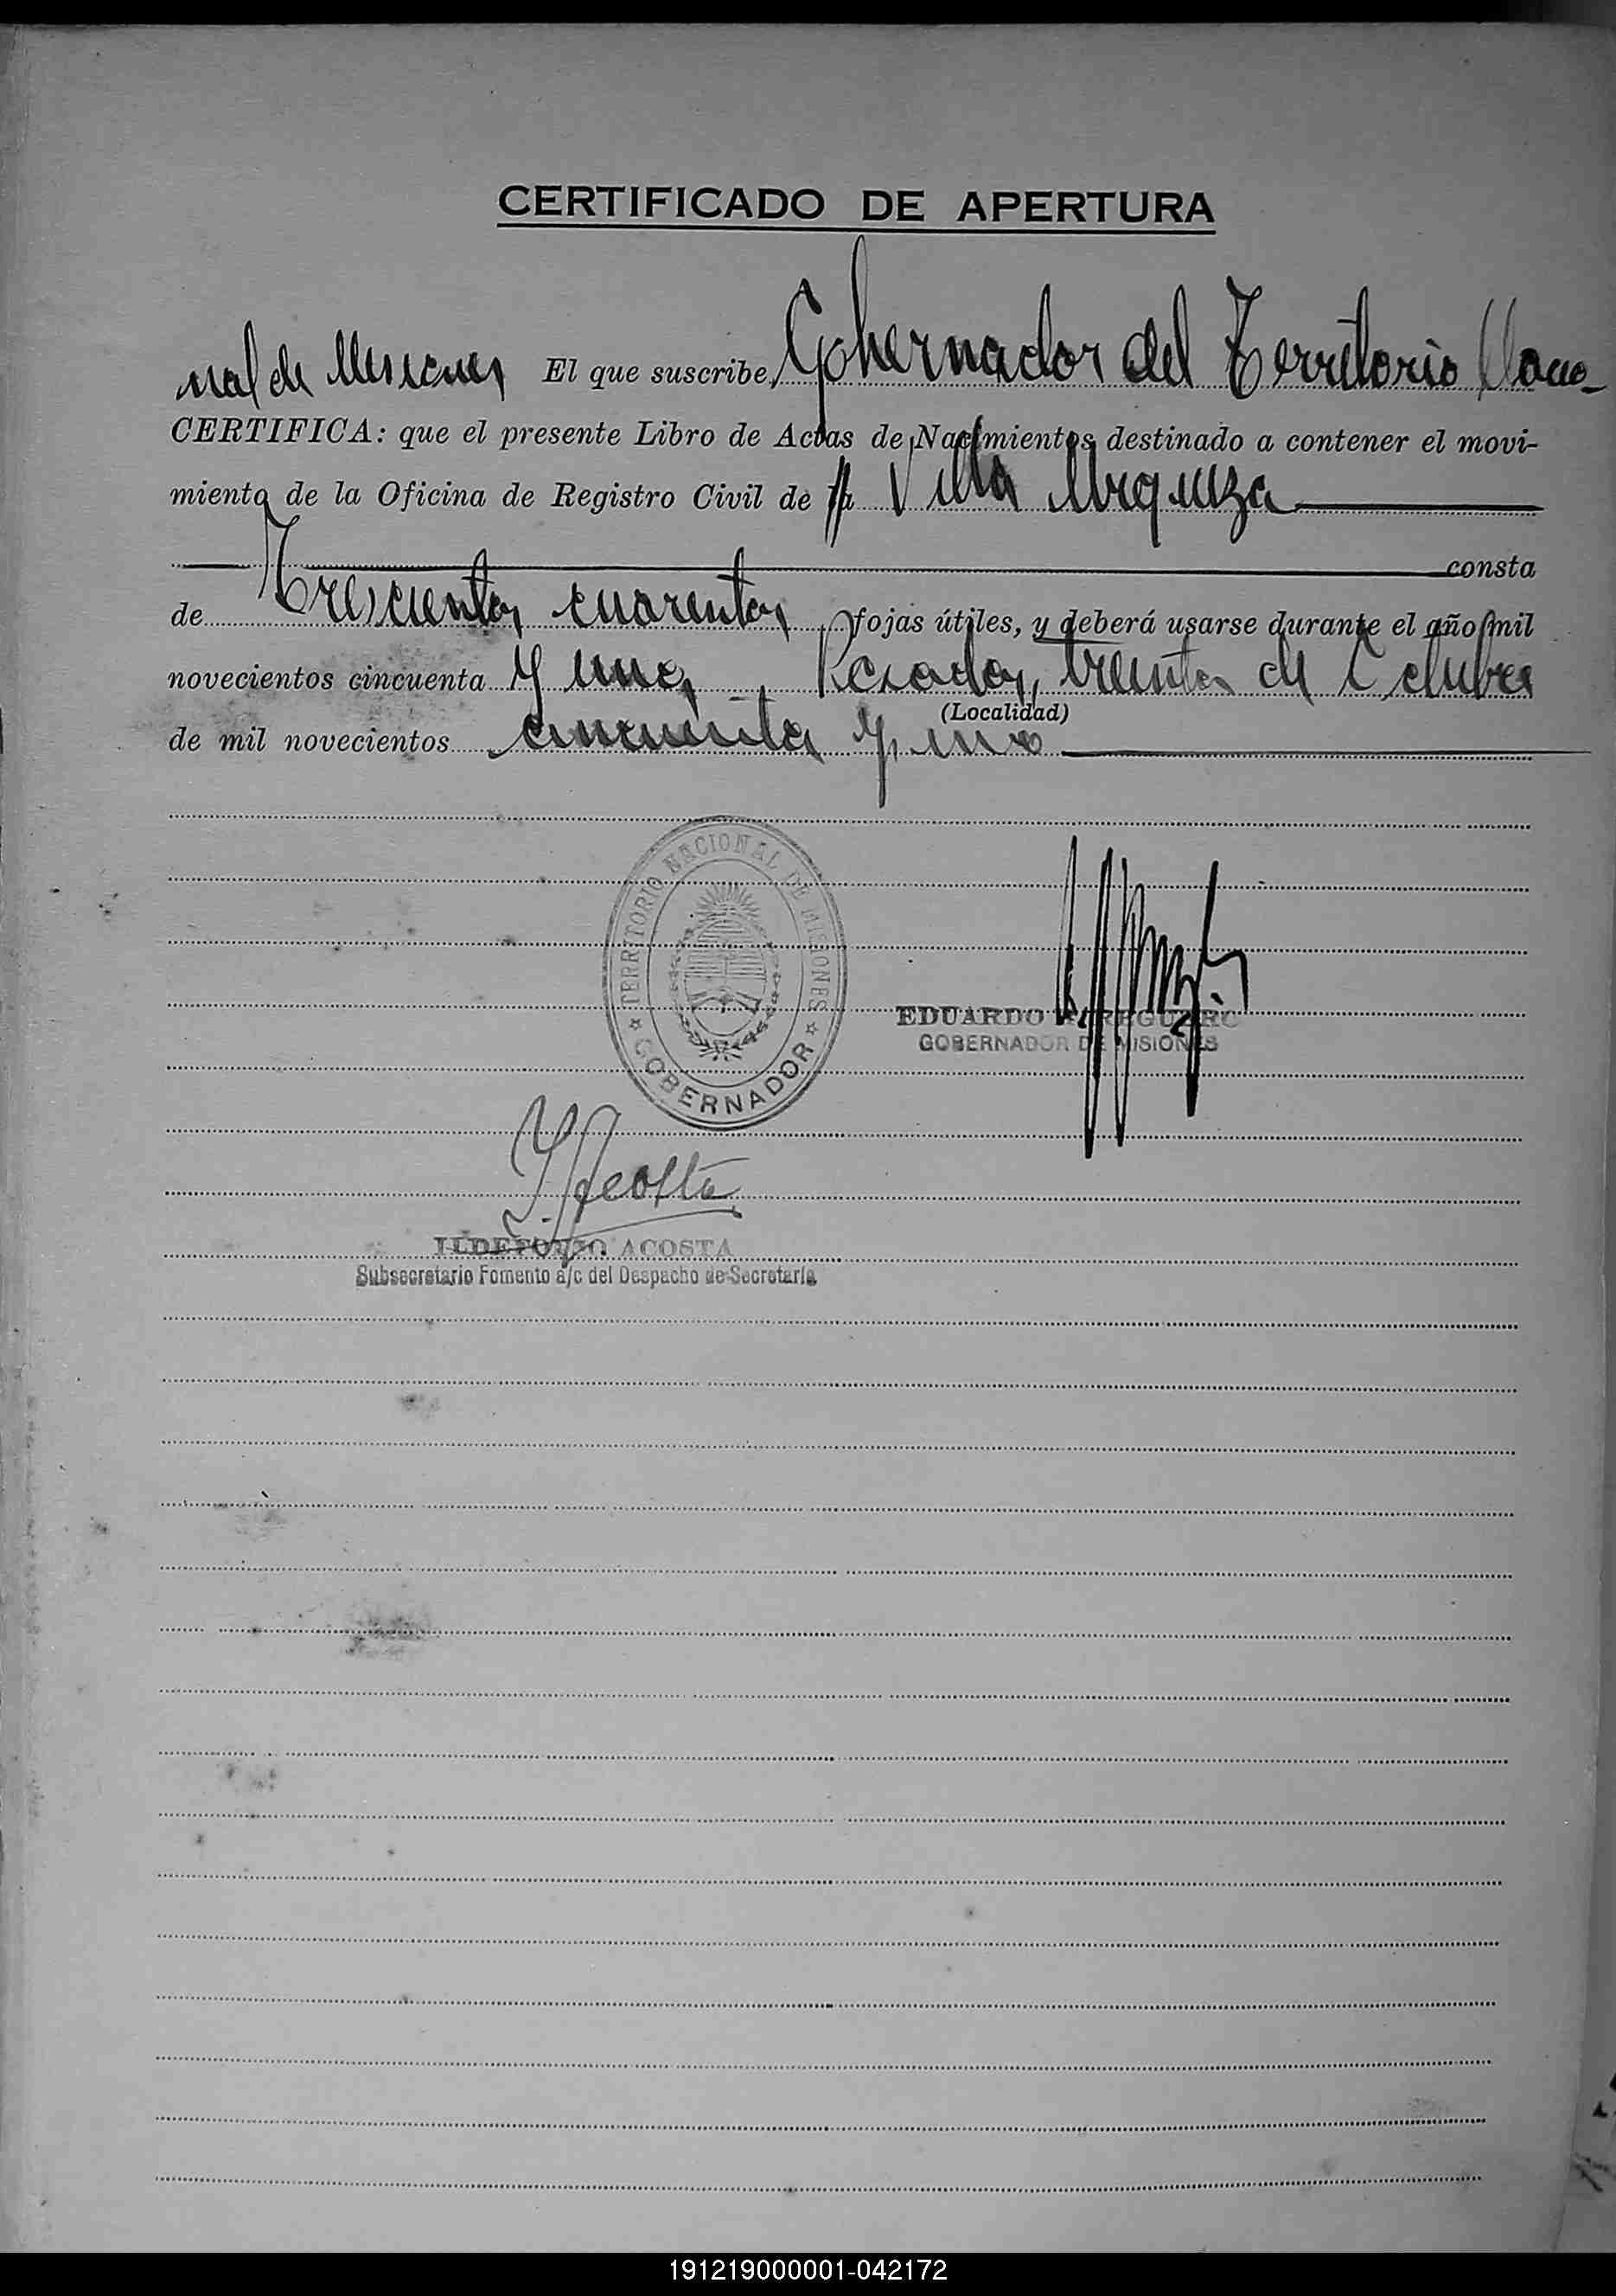 CERTIFICADO DE APERTURA
El que suscribe, Gobernador del Territorio Nacio-
nal de Misiones
CERTIFICA: que el presente Libro de Actas de Nacimientos destinado a contener el movi-
miento de la Oficina de Registro Civil de Villa Urquiza
consta
de Trescientos cuarenta fojas útiles, y deberá usarse durante el año mil
novecientos cincuenta y uno, Posadas, treinta de Octubre
(Localidad)
de mil novecientos cincuenta y uno
TERRITORIO NACIONAL DE MISIONES
GOBERNADOR
EDUARDO
GOBERNADOR DE MISIONES
I. Acosta
ILDEFONSO ACOSTA
Subsecretario Fomento a/c del Despacho de Secretaría
191219000001-042172